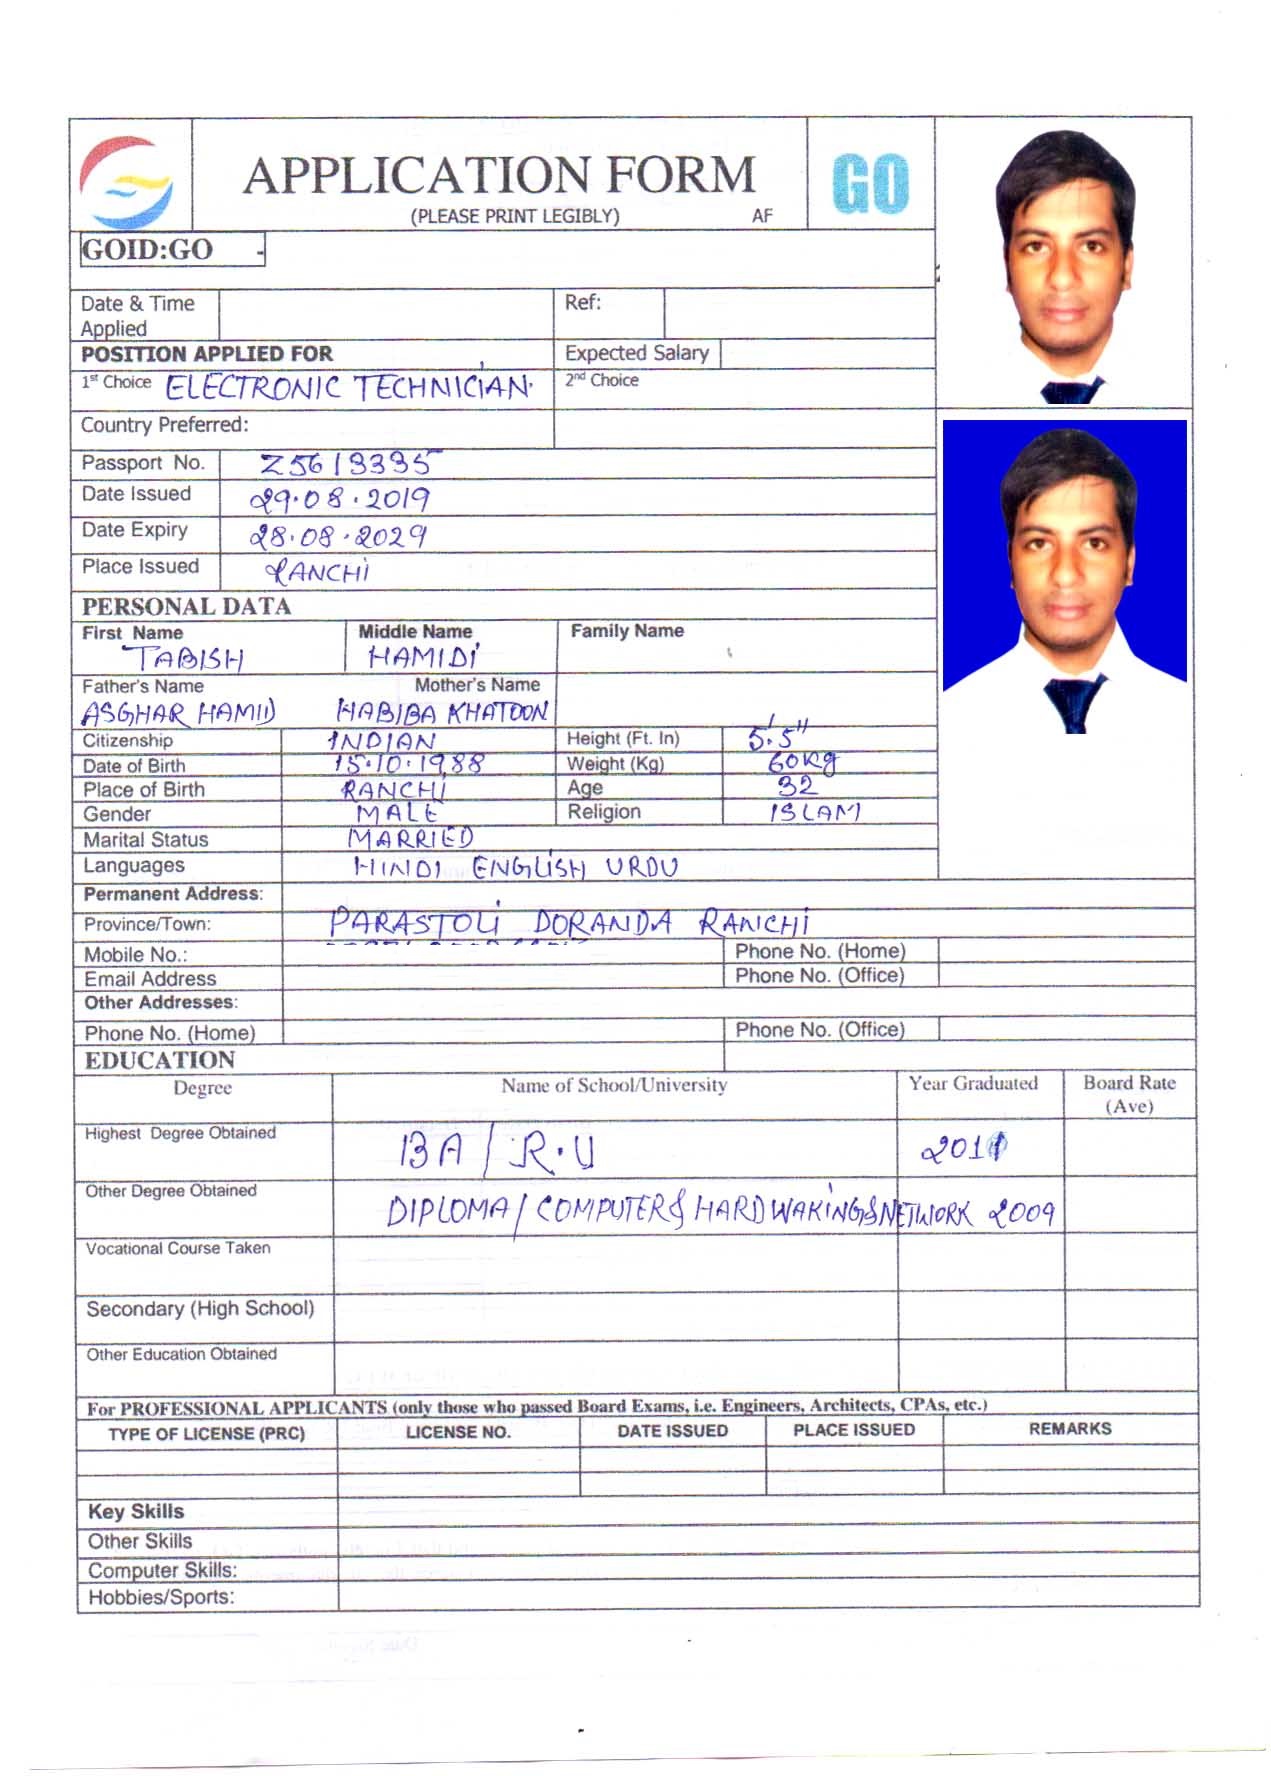 APPLICATION FORM
GO
(PLEASE PRINT LEGIBLY) AF
GOID:GO -
Date & Time Applied
Ref:
POSITION APPLIED FOR
Expected Salary
1st Choice ELECTRONIC TECHNICIAN.
2nd Choice
Country Preferred:
Passport No. Z5613335
Date Issued 29.08.2019
Date Expiry 28.08.2029
Place Issued RANCHI
PERSONAL DATA
First Name Middle Name Family Name
TABISH HAMIDI
Father's Name Mother's Name
ASGHAR HAMID HABIBA KHATOON
Citizenship INDIAN Height (Ft. In) 5'.5"
Date of Birth 15.10.1988 Weight (Kg) 60Kg
Place of Birth RANCHI Age 32
Gender MALE Religion ISLAM
Marital Status MARRIED
Languages HINDI ENGLISH URDU
Permanent Address:
Province/Town: PARASTOLI DORANDA RANCHI
Mobile No.: Phone No. (Home)
Email Address Phone No. (Office)
Other Addresses:
Phone No. (Home) Phone No. (Office)
EDUCATION
Degree Name of School/University Year Graduated Board Rate (Ave)
Highest Degree Obtained BA / R.U 2011
Other Degree Obtained DIPLOMA / COMPUTER & HARDWAKING & NETWORK 2009
Vocational Course Taken
Secondary (High School)
Other Education Obtained
For PROFESSIONAL APPLICANTS (only those who passed Board Exams, i.e. Engineers, Architects, CPAs, etc.)
TYPE OF LICENSE (PRC) LICENSE NO. DATE ISSUED PLACE ISSUED REMARKS
Key Skills
Other Skills
Computer Skills:
Hobbies/Sports: